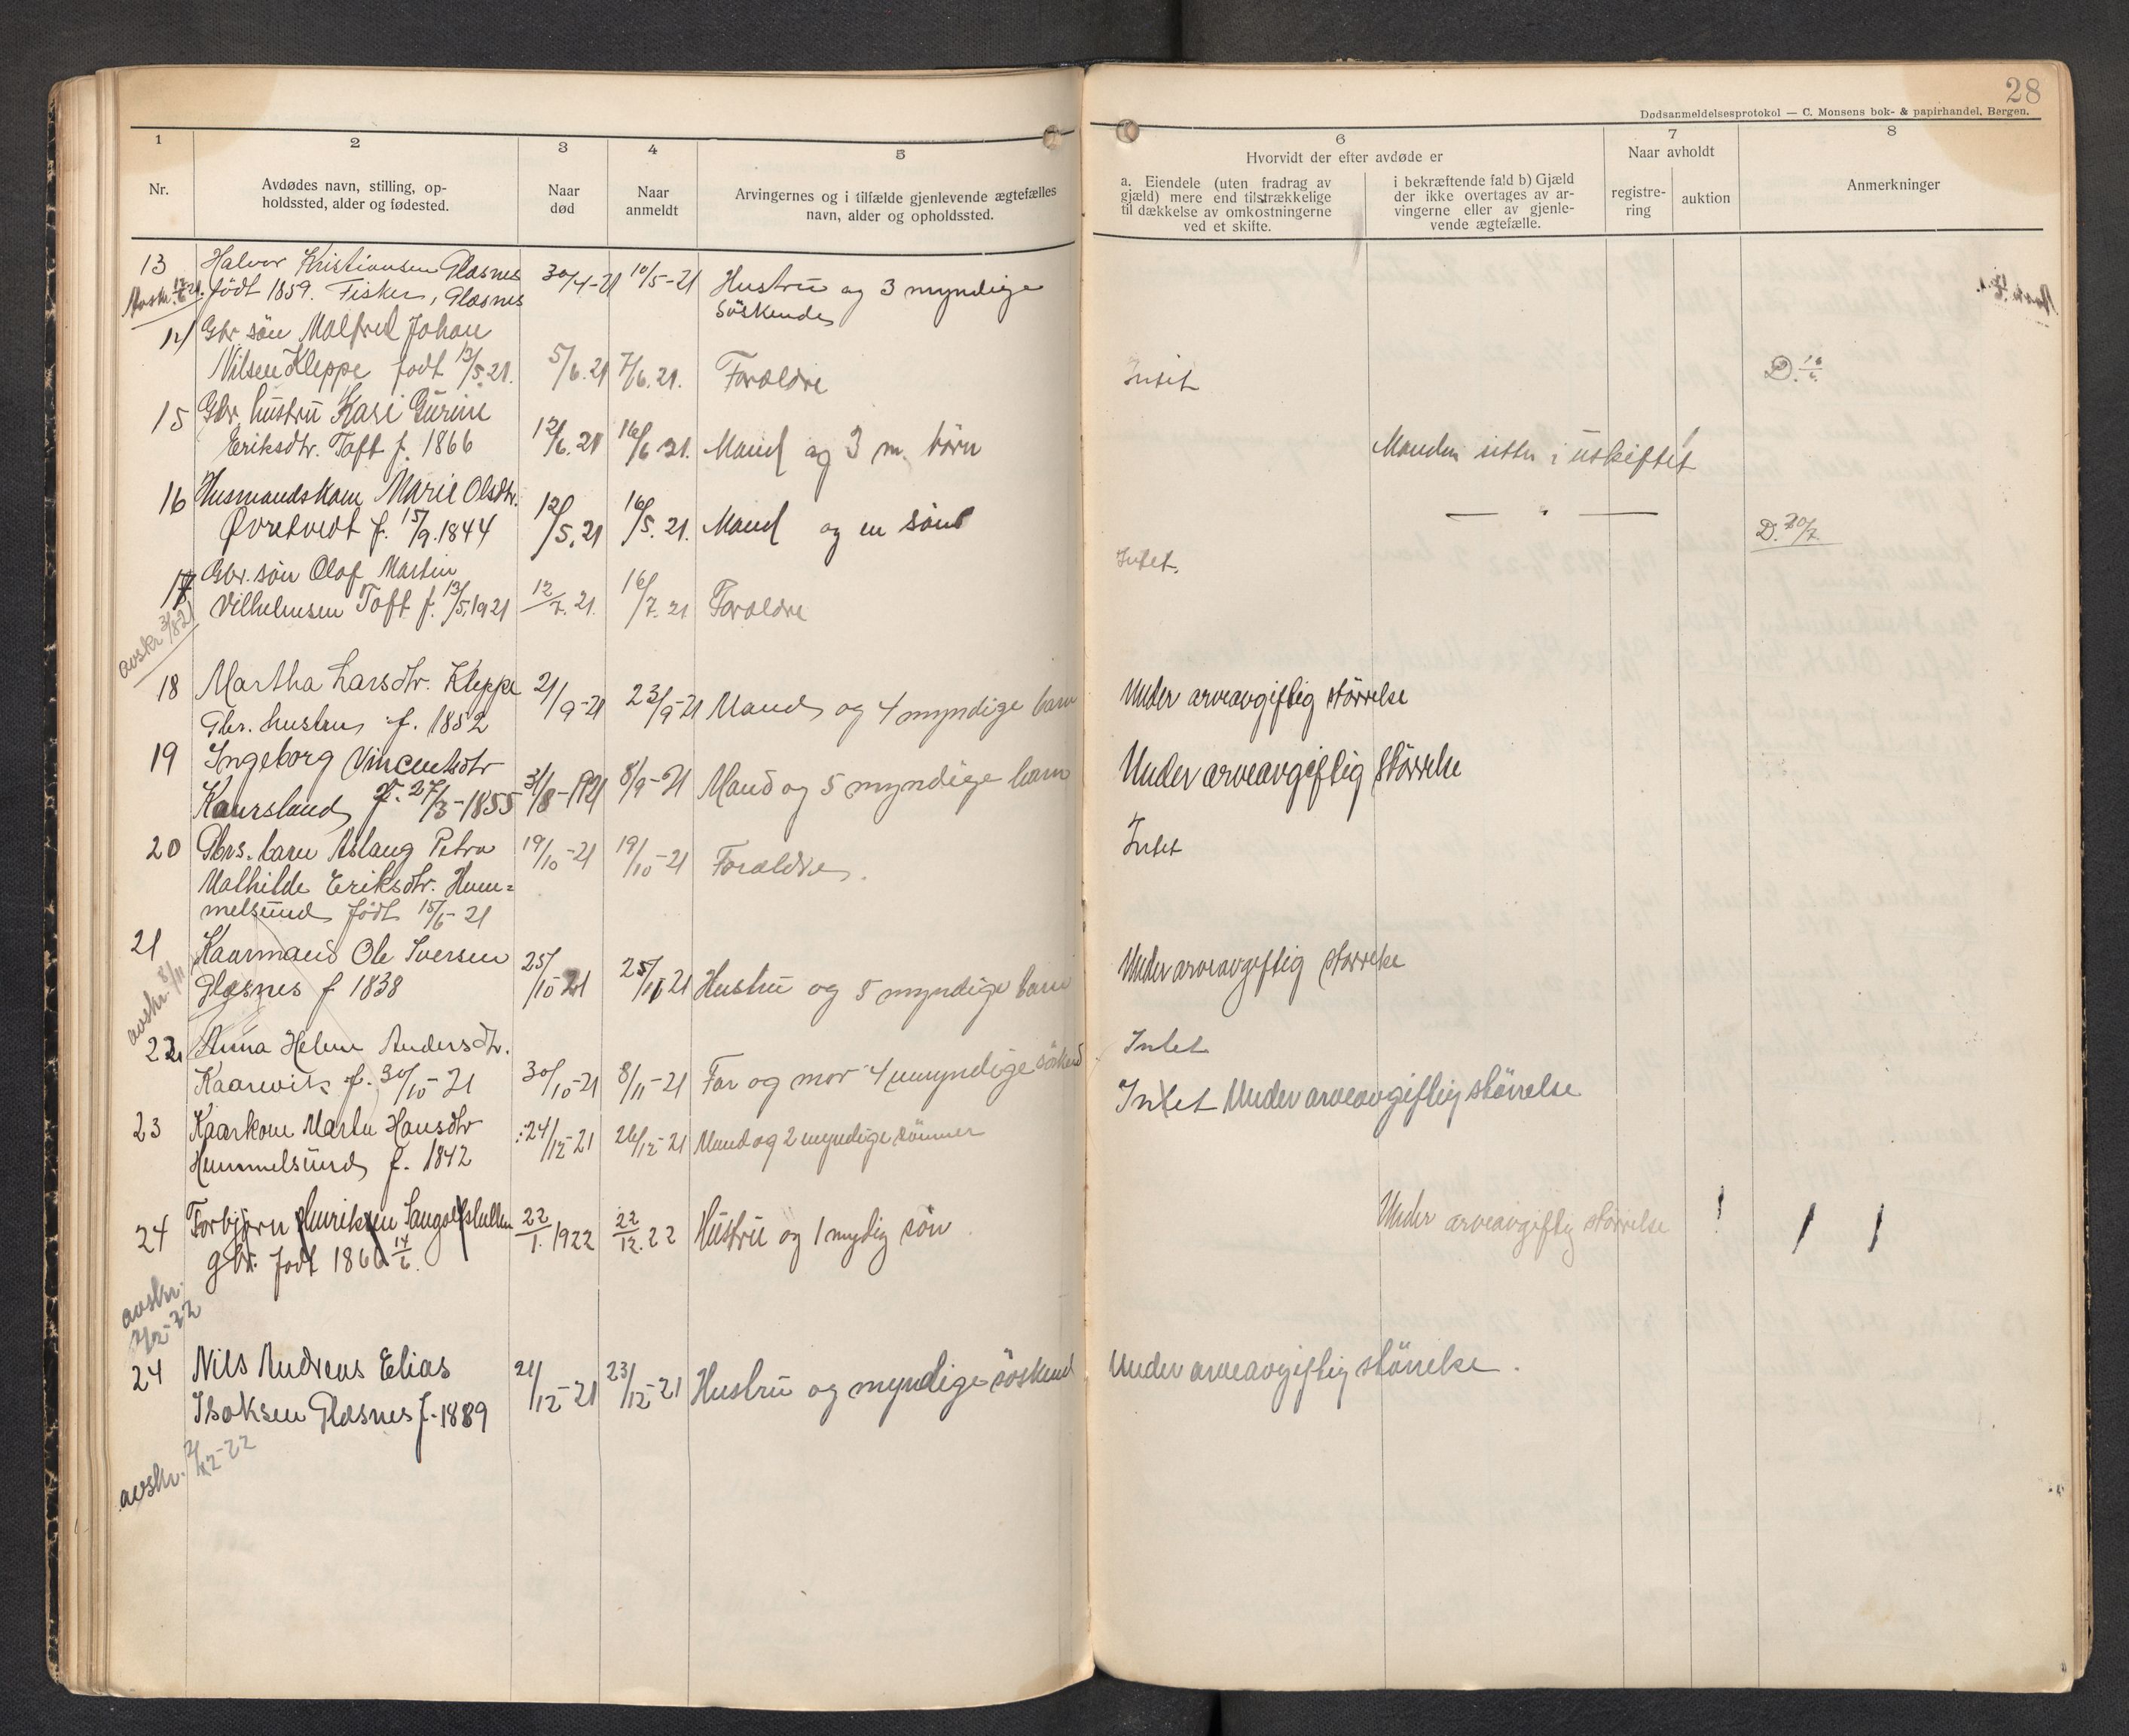 28
Dødsanmeldelsesprotokol — C. Monsens bok- & papirhandel, Bergen.
1 2 3 4 5 6 7 8
Nr.
Avdødes navn, stilling, op-
holdssted, alder og fødested.
Naar
død
Naar
anmeldt
Arvingernes og i tilfælde gjenlevende ægtefælles
navn, alder og opholdssted.
Hvorvidt der efter avdøde er
a. Eiendele (uten fradrag av
gjæld) mere end tilstrækkelige
til dækkelse av omkostningerne
ved et skifte.
i bekræftende fald b) Gjæld
der ikke overtages av ar-
vingerne eller av gjenle-
vende ægtefælle.
Naar avholdt
registre-
ring
auktion
Anmerkninger
13 Halvor Kristiansen Glæsnes 30/4-21 10/5-21 Hustru og 3 myndige
født 1859. Fisker, Glæsnes søskende
14 Gbr søn Malfred Johan
Nilsen Kleppe født 13/5 21. 5/6.21 7/6.21. Forældre Intet D. 16/6
15 Gbr hustru Kari Gurine
Eriksdtr. Toft f. 1866 12/6.21 16/6 21. Mand og 3 m. børn Manden sitter i uskiftet
16 Husmandskone Marie Olsdtr.
Øvretvedt f. 15/9.1844 12/5.21 16/5.21. Mand og en søn — " —
17 Gbr. søn Olaf Martin Intet. D. 20/7.
Vilhelmsen Toft f. 13/5.1921 12/7.21. 16/7.21 Forældre
avskr 31/8-21
18 Martha Larsdtr. Kleppe 21/9-21 23/9-21 Mand og 4 myndige barn Under arveavgiftig størrelse
Gbr. hustru f. 1852
19 Ingeborg Vincentsdtr
Kaursland f. 27/3-1855 31/8-1921 8/9-21 Mand og 5 myndige barn Under arveavgiftig størrelse
20 Gbrs. barn Aslaug Petra 19/10-21 19/10-21 Forældre. Intet
Mathilde Eriksdtr. Hum=
melsund født 15/6-21
21 Kaarmand Ole Iversen 25/10 21 25/11 21 Hustru og 5 myndige barn Under arveavgiftig størrelse
Glæsnes f 1838
avskr. 8/11
22 Anna Helene Andersdtr. Intet
Kaarevik f. 30/10-21 30/10-21 8/11-21 Far og mor 4 umyndige søskend
23 Kaarkone Marta Hansdtr 24/12-21 26/12-21 Mand og 2 myndige sønner Intet Under arveavgiftig størrelse
Hummelsund f. 1842
24 Torbjørn Henriksen 22/1.1922 22/12.22 Hustru og 1 mydig søn Under arveavgiftig størrelse
gbr. født 1866 14/6.
avskr.
2/12-22
24 Nils Andreas Elias 21/12-21 23/12-21 Hustru og myndige søskend Under arveavgiftig størrelse.
Isaksen Glæsnes f. 1889
avskr. 2/12-22